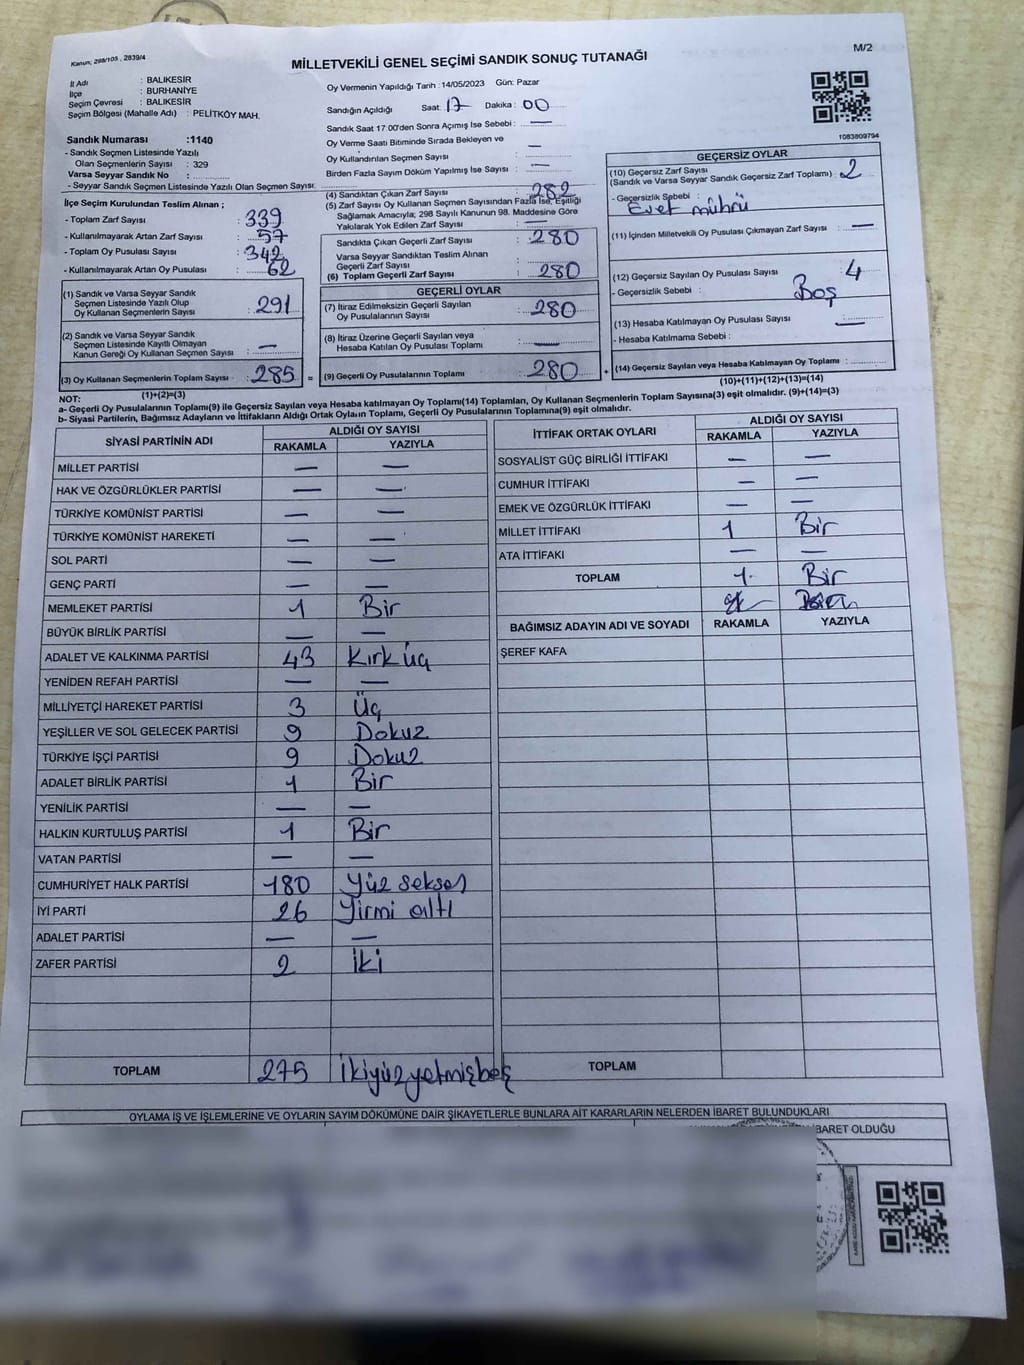 Kanun; 298/105 , 2839/4
MİLLETVEKİLİ GENEL SEÇİMİ SANDIK SONUÇ TUTANAĞI
M/2
İl Adı : BALIKESİR
İlçe : BURHANİYE
Seçim Çevresi : BALIKESİR
Seçim Bölgesi (Mahalle Adı) : PELİTKÖY MAH.
Sandık Numarası :1140
- Sandık Seçmen Listesinde Yazılı
Olan Seçmenlerin Sayısı : 329
Varsa Seyyar Sandık No :
- Seyyar Sandık Seçmen Listesinde Yazılı Olan Seçmen Sayısı:
İlçe Seçim Kurulundan Teslim Alınan ;
- Toplam Zarf Sayısı : 339
- Kullanılmayarak Artan Zarf Sayısı : 57
- Toplam Oy Pusulası Sayısı : 342
- Kullanılmayarak Artan Oy Pusulası : 62
(1) Sandık ve Varsa Seyyar Sandık
Seçmen Listesinde Yazılı Olup
Oy Kullanan Seçmenlerin Sayısı : 291
(2) Sandık ve Varsa Seyyar Sandık
Seçmen Listesinde Kayıtlı Olmayan
Kanun Gereği Oy Kullanan Seçmen Sayısı : —
(3) Oy Kullanan Seçmenlerin Toplam Sayısı : 285 =
Oy Vermenin Yapıldığı Tarih :14/05/2023 Gün: Pazar
Sandığın Açıldığı Saat: 17 Dakika : 00
Sandık Saat 17:00'den Sonra Açımış İse Sebebi : —
Oy Verme Saati Bitiminde Sırada Bekleyen ve
Oy Kullandırılan Seçmen Sayısı : —
Birden Fazla Sayım Döküm Yapılmış İse Sayısı : —
(4) Sandıktan Çıkan Zarf Sayısı : 282
(5) Zarf Sayısı Oy Kullanan Seçmen Sayısından Fazla İse, Eşitliği
Sağlamak Amacıyla; 298 Sayılı Kanunun 98. Maddesine Göre
Yakılarak Yok Edilen Zarf Sayısı : —
Sandıkta Çıkan Geçerli Zarf Sayısı : 280
Varsa Seyyar Sandıktan Teslim Alınan
Geçerli Zarf Sayısı :
(6) Toplam Geçerli Zarf Sayısı : 280
GEÇERLİ OYLAR
(7) İtiraz Edilmeksizin Geçerli Sayılan
Oy Pusulalarının Sayısı : 280
(8) İtiraz Üzerine Geçerli Sayılan veya
Hesaba Katılan Oy Pusulası Toplamı : —
(9) Geçerli Oy Pusulalarının Toplamı : 280 +
1083809794
GEÇERSİZ OYLAR
(10) Geçersiz Zarf Sayısı
(Sandık ve Varsa Seyyar Sandık Geçersiz Zarf Toplamı) : 2
- Geçersizlik Sebebi :
Evet mührü
(11) İçinden Milletvekili Oy Pusulası Çıkmayan Zarf Sayısı : —
(12) Geçersiz Sayılan Oy Pusulası Sayısı : 4
- Geçersizlik Sebebi : Boş
(13) Hesaba Katılmayan Oy Pusulası Sayısı : —
- Hesaba Katılmama Sebebi :
(14) Geçersiz Sayılan veya Hesaba Katılmayan Oy Toplamı :
NOT: (1)+(2)=(3) (10)+(11)+(12)+(13)=(14)
a- Geçerli Oy Pusulalarının Toplamı(9) ile Geçersiz Sayılan veya Hesaba katılmayan Oy Toplamı(14) Toplamları, Oy Kullanan Seçmenlerin Toplam Sayısına(3) eşit olmalıdır. (9)+(14)=(3)
b- Siyasi Partilerin, Bağımsız Adayların ve İttifakların Aldığı Ortak Oyların Toplamı, Geçerli Oy Pusulalarının Toplamına(9) eşit olmalıdır.
SİYASİ PARTİNİN ADI ALDIĞI OY SAYISI
RAKAMLA YAZIYLA
MİLLET PARTİSİ — —
HAK VE ÖZGÜRLÜKLER PARTİSİ — —
TÜRKİYE KOMÜNİST PARTİSİ — —
TÜRKİYE KOMÜNİST HAREKETİ — —
SOL PARTİ — —
GENÇ PARTİ — —
MEMLEKET PARTİSİ 1 Bir
BÜYÜK BİRLİK PARTİSİ — —
ADALET VE KALKINMA PARTİSİ 43 Kırk üç
YENİDEN REFAH PARTİSİ — —
MİLLİYETÇİ HAREKET PARTİSİ 3 Üç
YEŞİLLER VE SOL GELECEK PARTİSİ 9 Dokuz
TÜRKİYE İŞÇİ PARTİSİ 9 Dokuz
ADALET BİRLİK PARTİSİ 1 Bir
YENİLİK PARTİSİ — —
HALKIN KURTULUŞ PARTİSİ 1 Bir
VATAN PARTİSİ — —
CUMHURİYET HALK PARTİSİ 180 Yüz seksen
İYİ PARTİ 26 Yirmi altı
ADALET PARTİSİ — —
ZAFER PARTİSİ 2 İki
TOPLAM 275 İkiyüzyetmişbeş
İTTİFAK ORTAK OYLARI ALDIĞI OY SAYISI
RAKAMLA YAZIYLA
SOSYALİST GÜÇ BİRLİĞİ İTTİFAKI — —
CUMHUR İTTİFAKI — —
EMEK VE ÖZGÜRLÜK İTTİFAKI — —
MİLLET İTTİFAKI 1 Bir
ATA İTTİFAKI — —
TOPLAM 1 Bir
BAĞIMSIZ ADAYIN ADI VE SOYADI RAKAMLA YAZIYLA
ŞEREF KAFA
TOPLAM
OYLAMA İŞ VE İŞLEMLERİNE VE OYLARIN SAYIM DÖKÜMÜNE DAİR ŞİKAYETLERLE BUNLARA AİT KARARLARIN NELERDEN İBARET BULUNDUKLARI
İBARET OLDUĞU